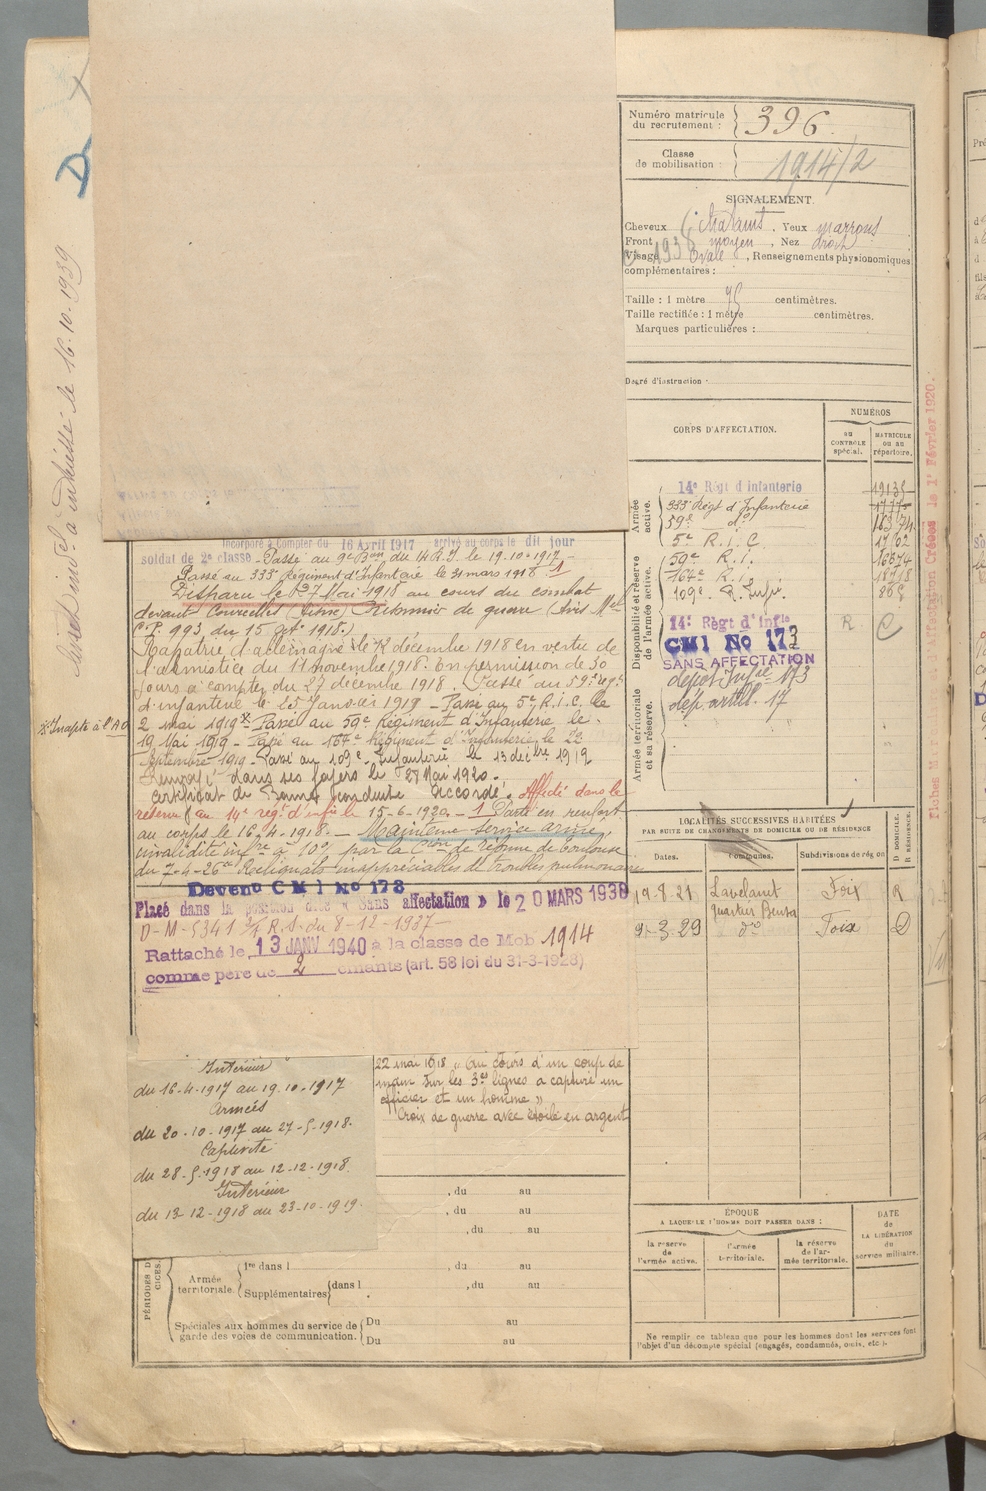 Numéro matricule
du recrutement : 396
Classe
de mobilisation : 1914/2
SIGNALEMENT.
Cheveux châtains, Yeux marrons
Front moyen, Nez droit
Visage ovale, Renseignements physionomiques
complémentaires :
Taille : 1 mètre centimètres.
Taille rectifiée : 1 mètre centimètres.
Marques particulières :
Degré d'instruction
CORPS D'AFFECTATION.
NUMÉROS
au
CONTRÔLE
spécial.
MATRICULE
ou au
répertoire.
Armée
active.
14e Régt d'infanterie
333e Régt d'Infanterie
59e do
5e R.I.C.
Disponibilité et réserve
de l'armée active.
59e R.I.
164e R.I.
109e R. Infie
14e Régt d'Infie R C
CMI No 173
SANS AFFECTATION
dépôt Infie 173
dép. artill. 17
Armée territoriale
et sa réserve.
Fiches Mles et d'Affectation Créées le 1r Février 1920.
D
le 16.10.1939
Incorporé à compter du 16 Avril 1917 arrivé au corps le dit jour
soldat de 2e classe. Passé au 9e Bon du 14 R.I. le 19.10.1917.
Passé au 333e Régiment d'Infanterie le 31 mars 1918. 1
Disparu le 27 Mai 1918 au cours du combat
devant Courcelles (Aisne) Prisonnier de guerre (Avis Mel
C.P. 993 du 15 1918.)
Rapatrié d'allemagne le 12 décembre 1918 en vertu de
l'armistice du 11 novembre 1918. En permission de 30
jours à compter du 27 décembre 1918. Passé au 59e régt
d'infanterie le 15 Janvier 1919 - Passé au 5e R.I.C. le
2 mai 1919 x. Passé au 59e Régiment d'Infanterie le
x Inapte à l'AO
19 Mai 1919 - Passé au 164e Régiment d'Infanterie le 22
Septembre 1919 - Passé au 109e Infanterie le 13 décbre 1919
Renvoyé dans ses foyers le 27 Mai 1920.
Certificat de Bonne Conduite "Accordé". Affecté dans la
réserve au 14e régt d'infie le 15-6-1920 - 1 Parti en renfort
au corps le 16.4.1918. - Maintenu service armé,
invalidité infre à 10% par la Cion de réforme de Toulouse
du 7-4-26 Reliquats inappréciables de troubles pulmonaires
Devenu CMI No 173
Placé dans la position dite « Sans affectation » le 20 MARS 1938
D-M-5341 du 8-12-1937
Rattaché le 13 JANV 1940 à la classe de Mob 1914
comme père de 2 enfants (art. 58 loi du 31-3-1928)
LOCALITÉS SUCCESSIVES HABITÉES
PAR SUITE DE CHANGEMENTS DE DOMICILE OU DE RÉSIDENCE
Dates. Communes. Subdivisions de région D DOMICILE. R RÉSIDENCE.
19-8-21 Lavelanet Foix R
quartier Bensa
9-3-29 do Foix D
Intérieur
du 16-4-1917 au 19.10.1917
Armées
du 20-10-1917 au 27-5-1918.
Captivité
du 28-5-1918 au 12-12-1918.
Intérieur
du 13-12-1918 au 23-10-1919.
22 mai 1918 « Au cours d'un coup de
main sur les 3es lignes a capturé un
officier et un homme »
Croix de guerre avec étoile en argent
, du au
, du au
, du au
PÉRIODES
Armée
territoriale.
1re dans l , du au
Supplémentaires dans l , du au
Spéciales aux hommes du service de
garde des voies de communication.
Du au
Du au
ÉPOQUE
A LAQUELLE L'HOMME DOIT PASSER DANS :
la réserve
de
l'armée active.
l'armée
territoriale.
la réserve
de l'ar-
mée territoriale.
DATE
de
LA LIBÉRATION
du
service militaire.
Ne remplir ce tableau que pour les hommes dont les services font
l'objet d'un décompte spécial (engagés, condamnés, omis, etc.).